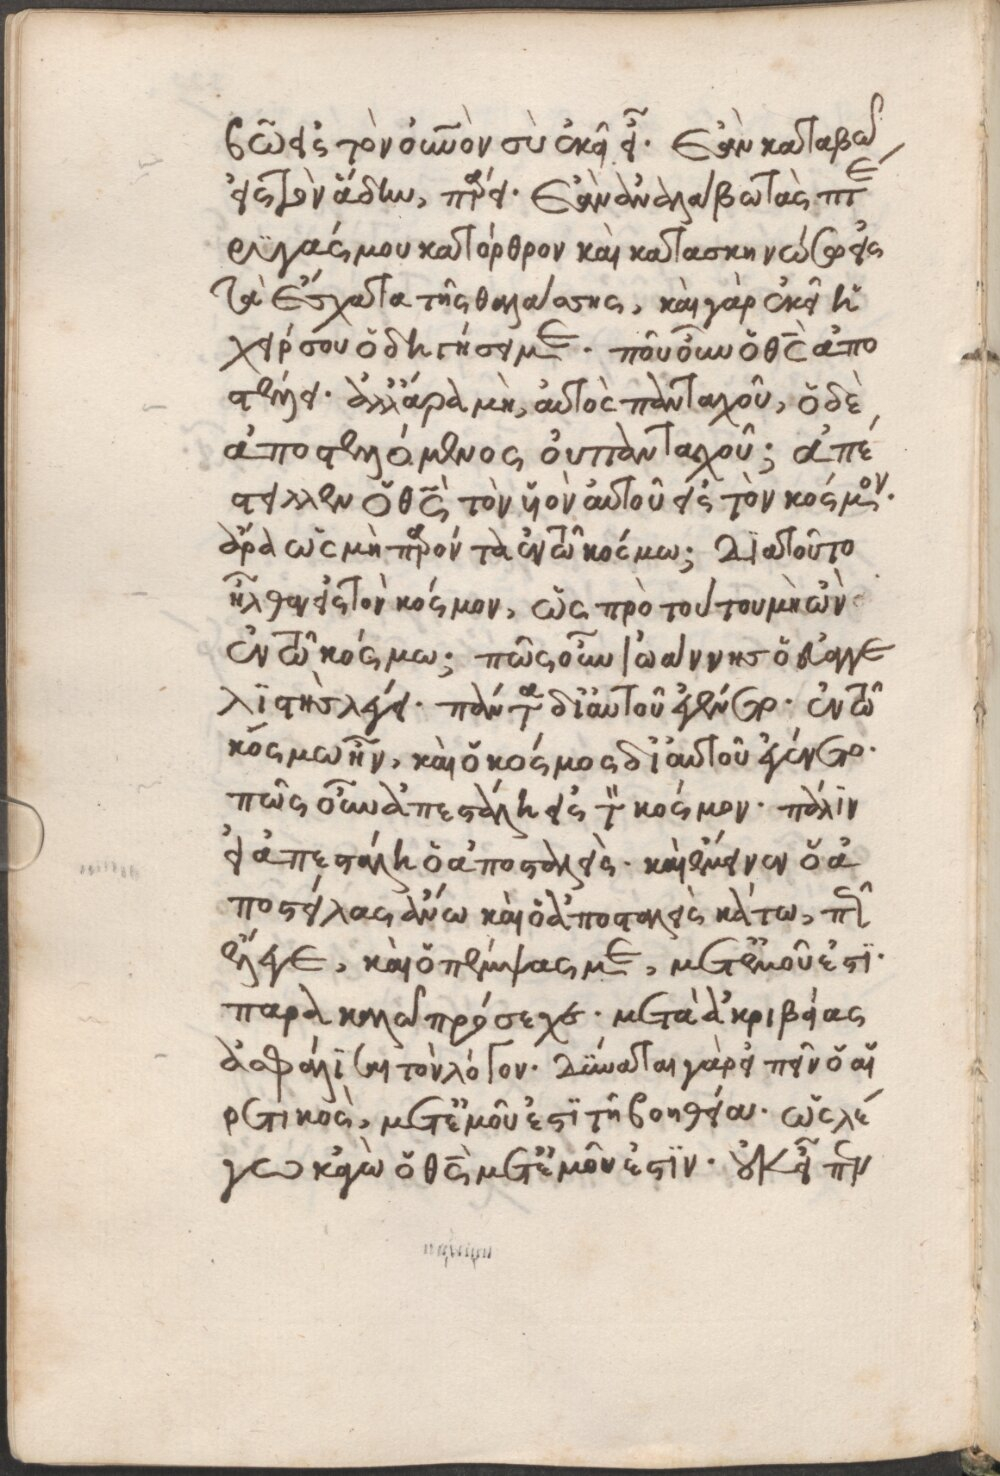 βῶ εἰς τὸν οὐνὸν σὺ ἐκεῖ εἶ. Ἐὰν καταβῶ
εἰς τὸν ἅδην, πάρει. Ἐὰν ἀναλάβω τὰς πτέ
ρυγάς μου κατ ὄρθρον καὶ κατασκηνώσω εἰς
τὰ ἔσχατα τῆς θαλάσσης, καὶ γὰρ ἐκεῖ ἡ
χείρ σου ὁδηγήσει με. ποῦ οὖν ὁ θς ἀπο
στέλλει. ἀλλ ἄρα μὴ, αὐτὸς πανταχοῦ, ὁ δὲ
ἀποστελλόμενος οὐ πανταχοῦ; ἀπέ
στειλεν ὁ θς τὸν υἱὸν αὐτοῦ εἰς τὸν κόσμον.
ἆρα ὡς μὴ παρόντα ἐν τῷ κόσμω; Διατοῦτο
ἦλθεν εἰς τὸν κόσμον, ὡς πρὸ τούτου μὴ ὢν
ἐν τῷ κόσμω; πῶς οὖν Ἰωάννησ ὁ εὐαγγε
λιστὴσ λέγει. πάντα δι αὐτοῦ ἐγένετο. ἐν τῷ
κόσμω ἦν, καὶ ὁ κόσμος δι αὐτοῦ ἐγένετο.
πῶς οὖν ἀπεστάλη εἰς τὸν κόσμον. πάλιν
εἰ ἀπεστάλη ὁ ἀποσταλεὶς. καὶ ἔμεινεν ὁ ἀ
ποστείλας ἄνω καὶ ὁ ἀποσταλεὶς κάτω, πῶς
ἔλεγε, καὶ ὁ πέμψας με, μετ ἐμοῦ ἐστι.
παρακαλῶ πρόσεχε. μετὰ ἀκριβείας
ἀσφάλισαι τὸν λόγον. Δύναται γὰρ εἰπεῖν ὁ αἱ
ρετικὸς, μετ ἐμοῦ ἐστι τῆ βοηθεία. ὡς λέ
γω κἀγὼ ὁ θς μετ ἐμοῦ ἐστιν. οὐκ εἶπεν